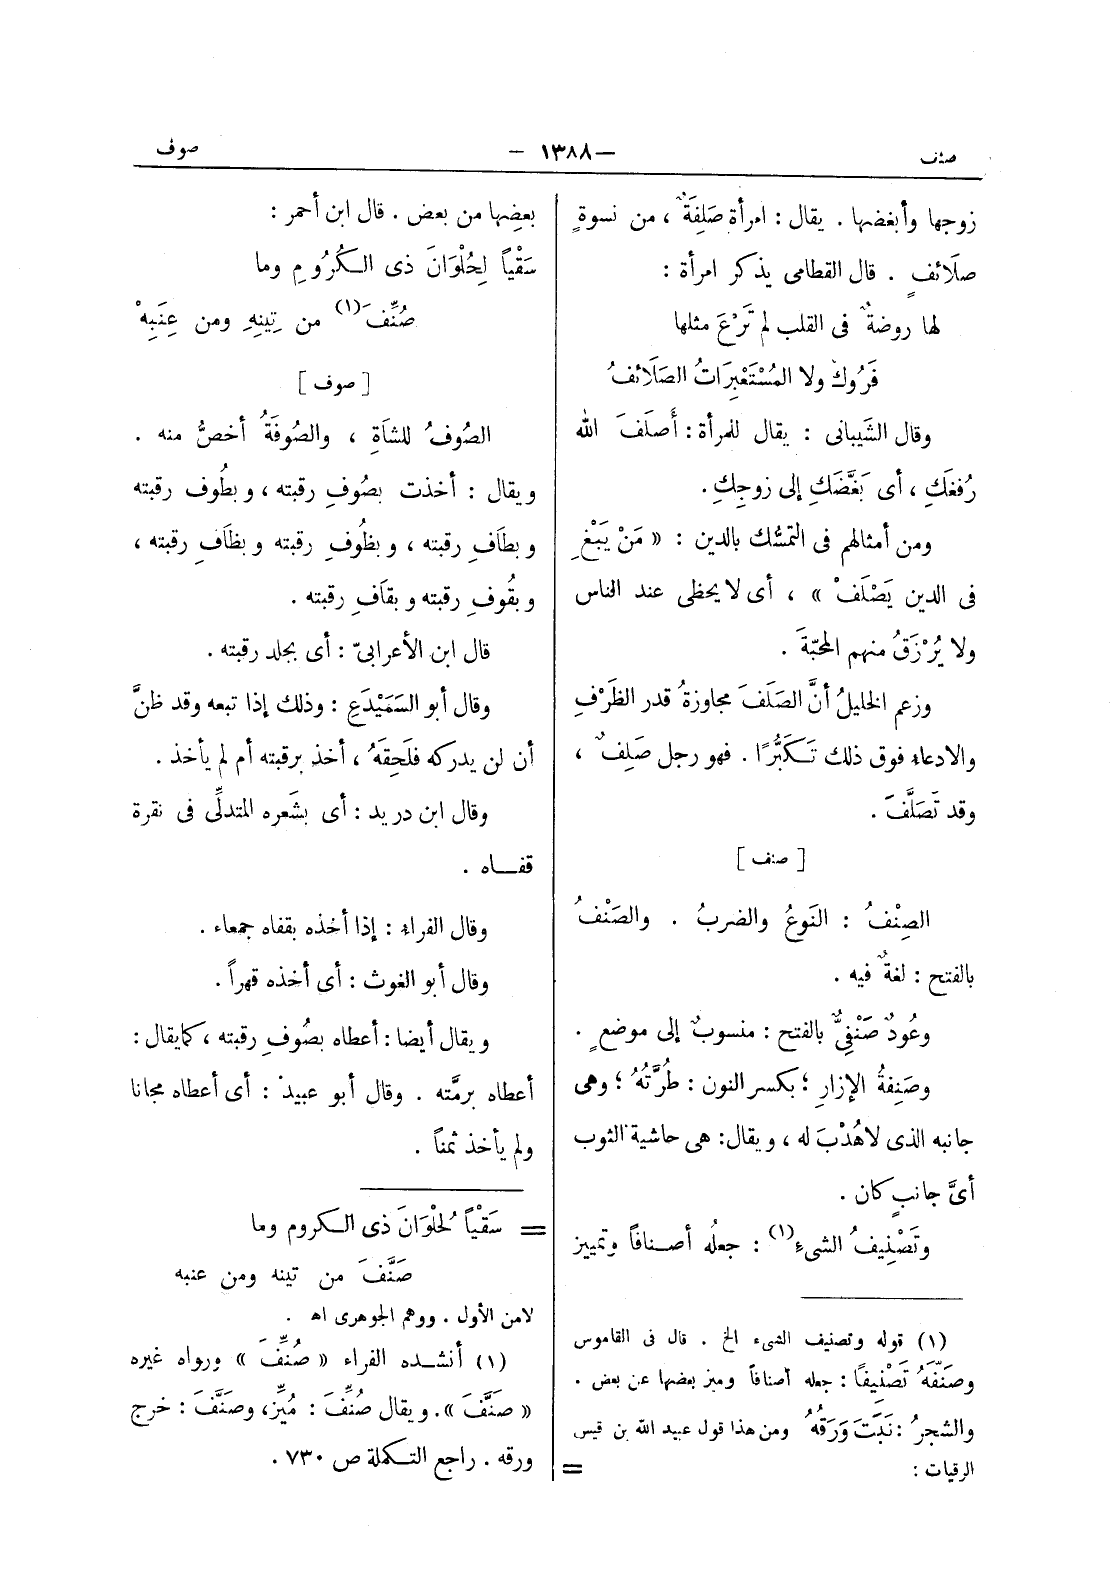 صنف
— ١٣٨٨ —
صوف
زوجها وأبغضها . يقال : امرأة صَلِفَةٌ ، من نسوةٍ
صلَائفٍ . قال القطامى يذكر امرأة :
لها روضةٌ فى القلب لم تَرْعَ مثلها
فَرُوكٌ ولا المُسْتَعْبِرَاتُ الصَلَائفُ
وقال الشيبانى : يقال للمرأة : أَصلَفَ الله
رُفغَكِ ، أى بَغَّضَكِ إلى زوجِكِ .
ومن أمثالهم فى التمسُّك بالدين : « مَنْ يَبْغِ
فى الدين يَصْلَفْ » ، أى لا يحظى عند الناس
ولا يُرْزَقُ منهم المحبّةَ .
وزعم الخليلُ أنَّ الصَلَفَ مجاوزةُ قدر الظَرْفِ
والادعاء فوق ذلك تَكَبُّرًا . فهو رجل صَلِفٌ ،
وقد تَصَلَّفَ .
[ صنف ]
الصِنْفُ : النَوعُ والضربُ . والصَنْفُ
بالفتح : لغةٌ فيه .
وعُودٌ صَنْفِىٌّ بالفتح : منسوبٌ إلى موضعٍ .
وصَنِفةُ الإزارِ ؛ بكسر النون : طُرَّتُهُ ؛ وهى
جانبه الذى لا هُدْبَ له ، ويقال : هى حاشية الثوب
أىَّ جانبٍ كان .
وتَصْنِيفُ الشىءِ (١) : جعلُه أصنافاً وتمييز
(١) قوله وتصنيف الشىء الخ . قال فى القاموس
وصَنَّفَهُ تَصْنِيفًا : جعله أصنافاً وميز بعضها عن بعض .
والشجرُ : نَبَتَ وَرَقُهُ ومن هذا قول عبيد الله بن قيس
الرقيات : =
بعضِها من بعض . قال ابن أحمر :
سَقْياً لِحُلْوَانَ ذى الكُرُومِ وما
صُنِّفَ (١) من تِينِهِ ومن عِنَبِهْ
[ صوف ]
الصُوفُ للشاةِ ، والصُوفَةُ أخصُّ منه .
ويقال : أخذت بصُوفِ رقبته ، وبطُوف رقبته
وبطَافِ رقبته ، وبظُوفِ رقبته وبظَافِ رقبته ،
وبقُوفِ رقبته وبقَافِ رقبته .
قال ابن الأعرابىّ : أى بجلد رقبته .
وقال أبو السَمَيْدَعِ : وذلك إذا تبعه وقد ظنَّ
أن لن يدركه فلَحِقَهُ ، أخذ برقبته أم لم يأخذ .
وقال ابن دريد : أى بشَعره المتدلِّى فى نقرة
قفاه .
وقال الفراء : إذا أخذه بقفاه جمعاء .
وقال أبو الغوث : أى أخذه قهراً .
ويقال أيضا : أعطاه بصُوفِ رقبته ، كما يقال :
أعطاه برمَّته . وقال أبو عبيد : أى أعطاه مجانا
ولم يأخذ ثمناً .
= سَقْياً لحُلْوَانَ ذى الكروم وما
صَنَّفَ من تينه ومن عنبه
لا من الأول . ووهم الجوهرى اه .
(١) أنشده الفراء « صُنِّفَ » ورواه غيره
« صَنَّفَ » . ويقال صُنِّفَ : مُيِّز ، وصَنَّفَ : خرج
ورقه . راجع التكملة ص ٧٣٠ .